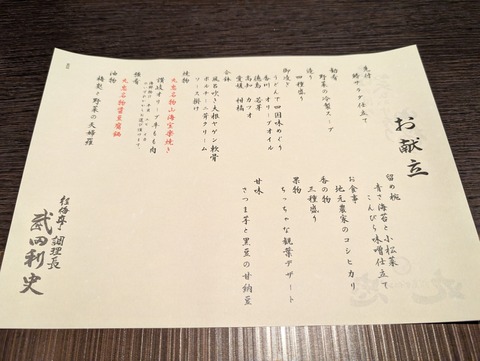 お献立
先付
鮪サラダ仕立て
野菜の冷製スープ
造り
四種盛り
うどんで四国味めぐり
香川 オリーブオイル
徳島 若芽
高知 カツオ
愛媛 柑橘
台鉢
風呂吹き大根ヤゲン軟骨
ボルチーニ茸クリーム
ソース掛け
焼物
大庄名物山海宝楽焼き
讃岐オリーブ牛もも肉
強肴
油物
梅麩と野菜の天婦羅
留め椀
青さ海苔と小松菜
こんぴら味噌仕立て
お食事
地元農家のコシヒカリ
香の物
三種盛り
果物
ちっちゃな観葉デザート
甘味
さつま芋と黒豆の甘納豆
調理長
武田利史